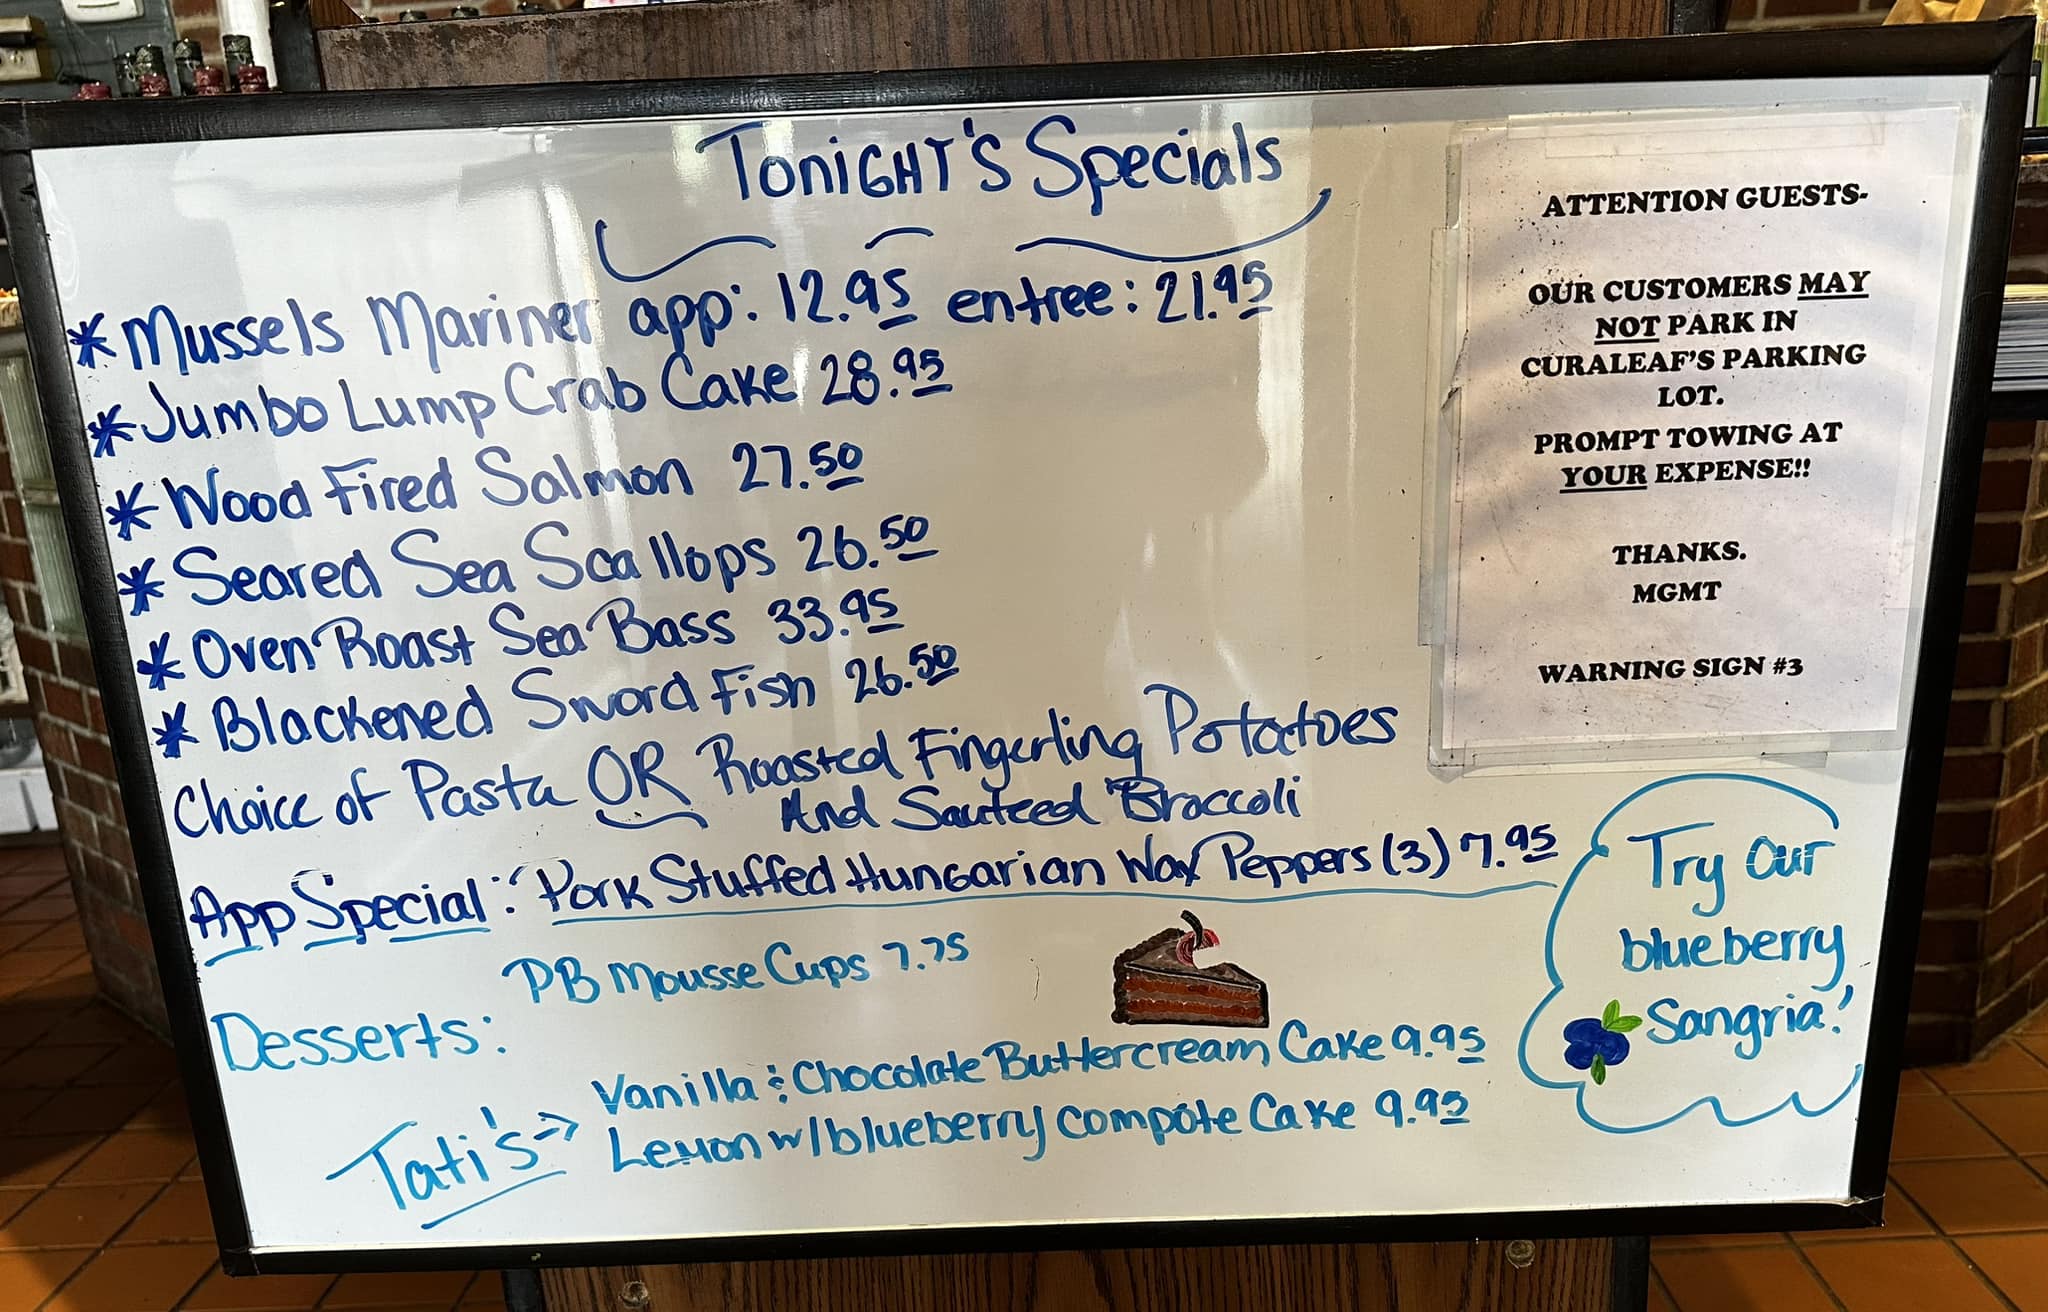 TONIGHT'S Specials
* Mussels Mariner app: 12.95 entree: 21.95
* Jumbo Lump Crab Cake 28.95
* Wood Fired Salmon 27.50
* Seared Sea Scallops 26.50
* Oven Roast Sea Bass 33.95
* Blackened Sword Fish 26.50
Choice of Pasta OR Roasted Fingerling Potatoes
And Sauteed Broccoli
App Special: Pork Stuffed Hungarian Wax Peppers (3) 7.95
PB Mousse Cups 7.75
Desserts:
Tati's → Vanilla & Chocolate Buttercream Cake 9.95
Lemon w/blueberry compote Cake 9.95
Try our
blueberry
Sangria!
ATTENTION GUESTS-
OUR CUSTOMERS MAY
NOT PARK IN
CURALEAF'S PARKING
LOT.
PROMPT TOWING AT
YOUR EXPENSE!!
THANKS.
MGMT
WARNING SIGN #3